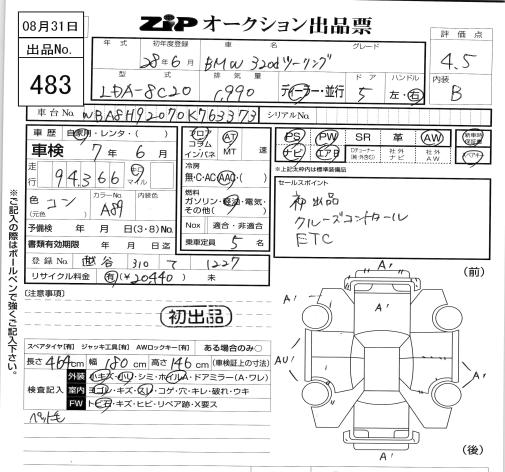 08月31日
出品No.
483
ZIP オークション出品票
評価点
4.5
内装
B
年式 初年度登録 車名 グレード
28年6月 BMW 320dツーリング
型式 排気量 ドア ハンドル
LDA-8C20 1,990 ディーラー・並行 5 左・右
車台No. WBA8H92070K763373 シリアルNo.
車歴 自家用・レンタ・( )
車検 7年6月
走行 94,366 キロ マイル
色 (元色) コン カラーNo. A89 内装色
予備検 年 月 日(3・8)No.
書類有効期限 年 月 日迄
登録No. 越谷 310 て 1227
リサイクル料金 有(¥20,440) 未
フロア コラム インパネ AT MT 速
冷房
無・C・AC・AAC・( )
燃料
ガソリン・軽油・電気・その他( )
Nox 適合・非適合
乗車定員 5 名
PS PW SR 革 AW 新車時保証書
ナビ エアB 社外ナビ 社外AW
※上記太枠内は標準装備品
セールスポイント
初出品
クルーズコントロール
ETC
※ご記入の際はボールペンで強くご記入下さい。
[注意事項]
初出品
スペアタイヤ[有] ジャッキ工具[有] AWロックキー[有] ある場合のみ○
長さ 464cm 幅 180cm 高さ 146cm (車検証上の寸法)
検査記入
外装 小キズ・小凹・シミ・ホイルA・ドアミラー(A・ワレ)
室内 ヨゴレ・キズ・スレ・コゲ・穴・キレ・破れ・ウキ
FW トビ石・キズ・ヒビ・リペア跡・X要ス
ペット毛
(前)
A'
A'
A'
A'
AU'
A'
A'
A'
(後)